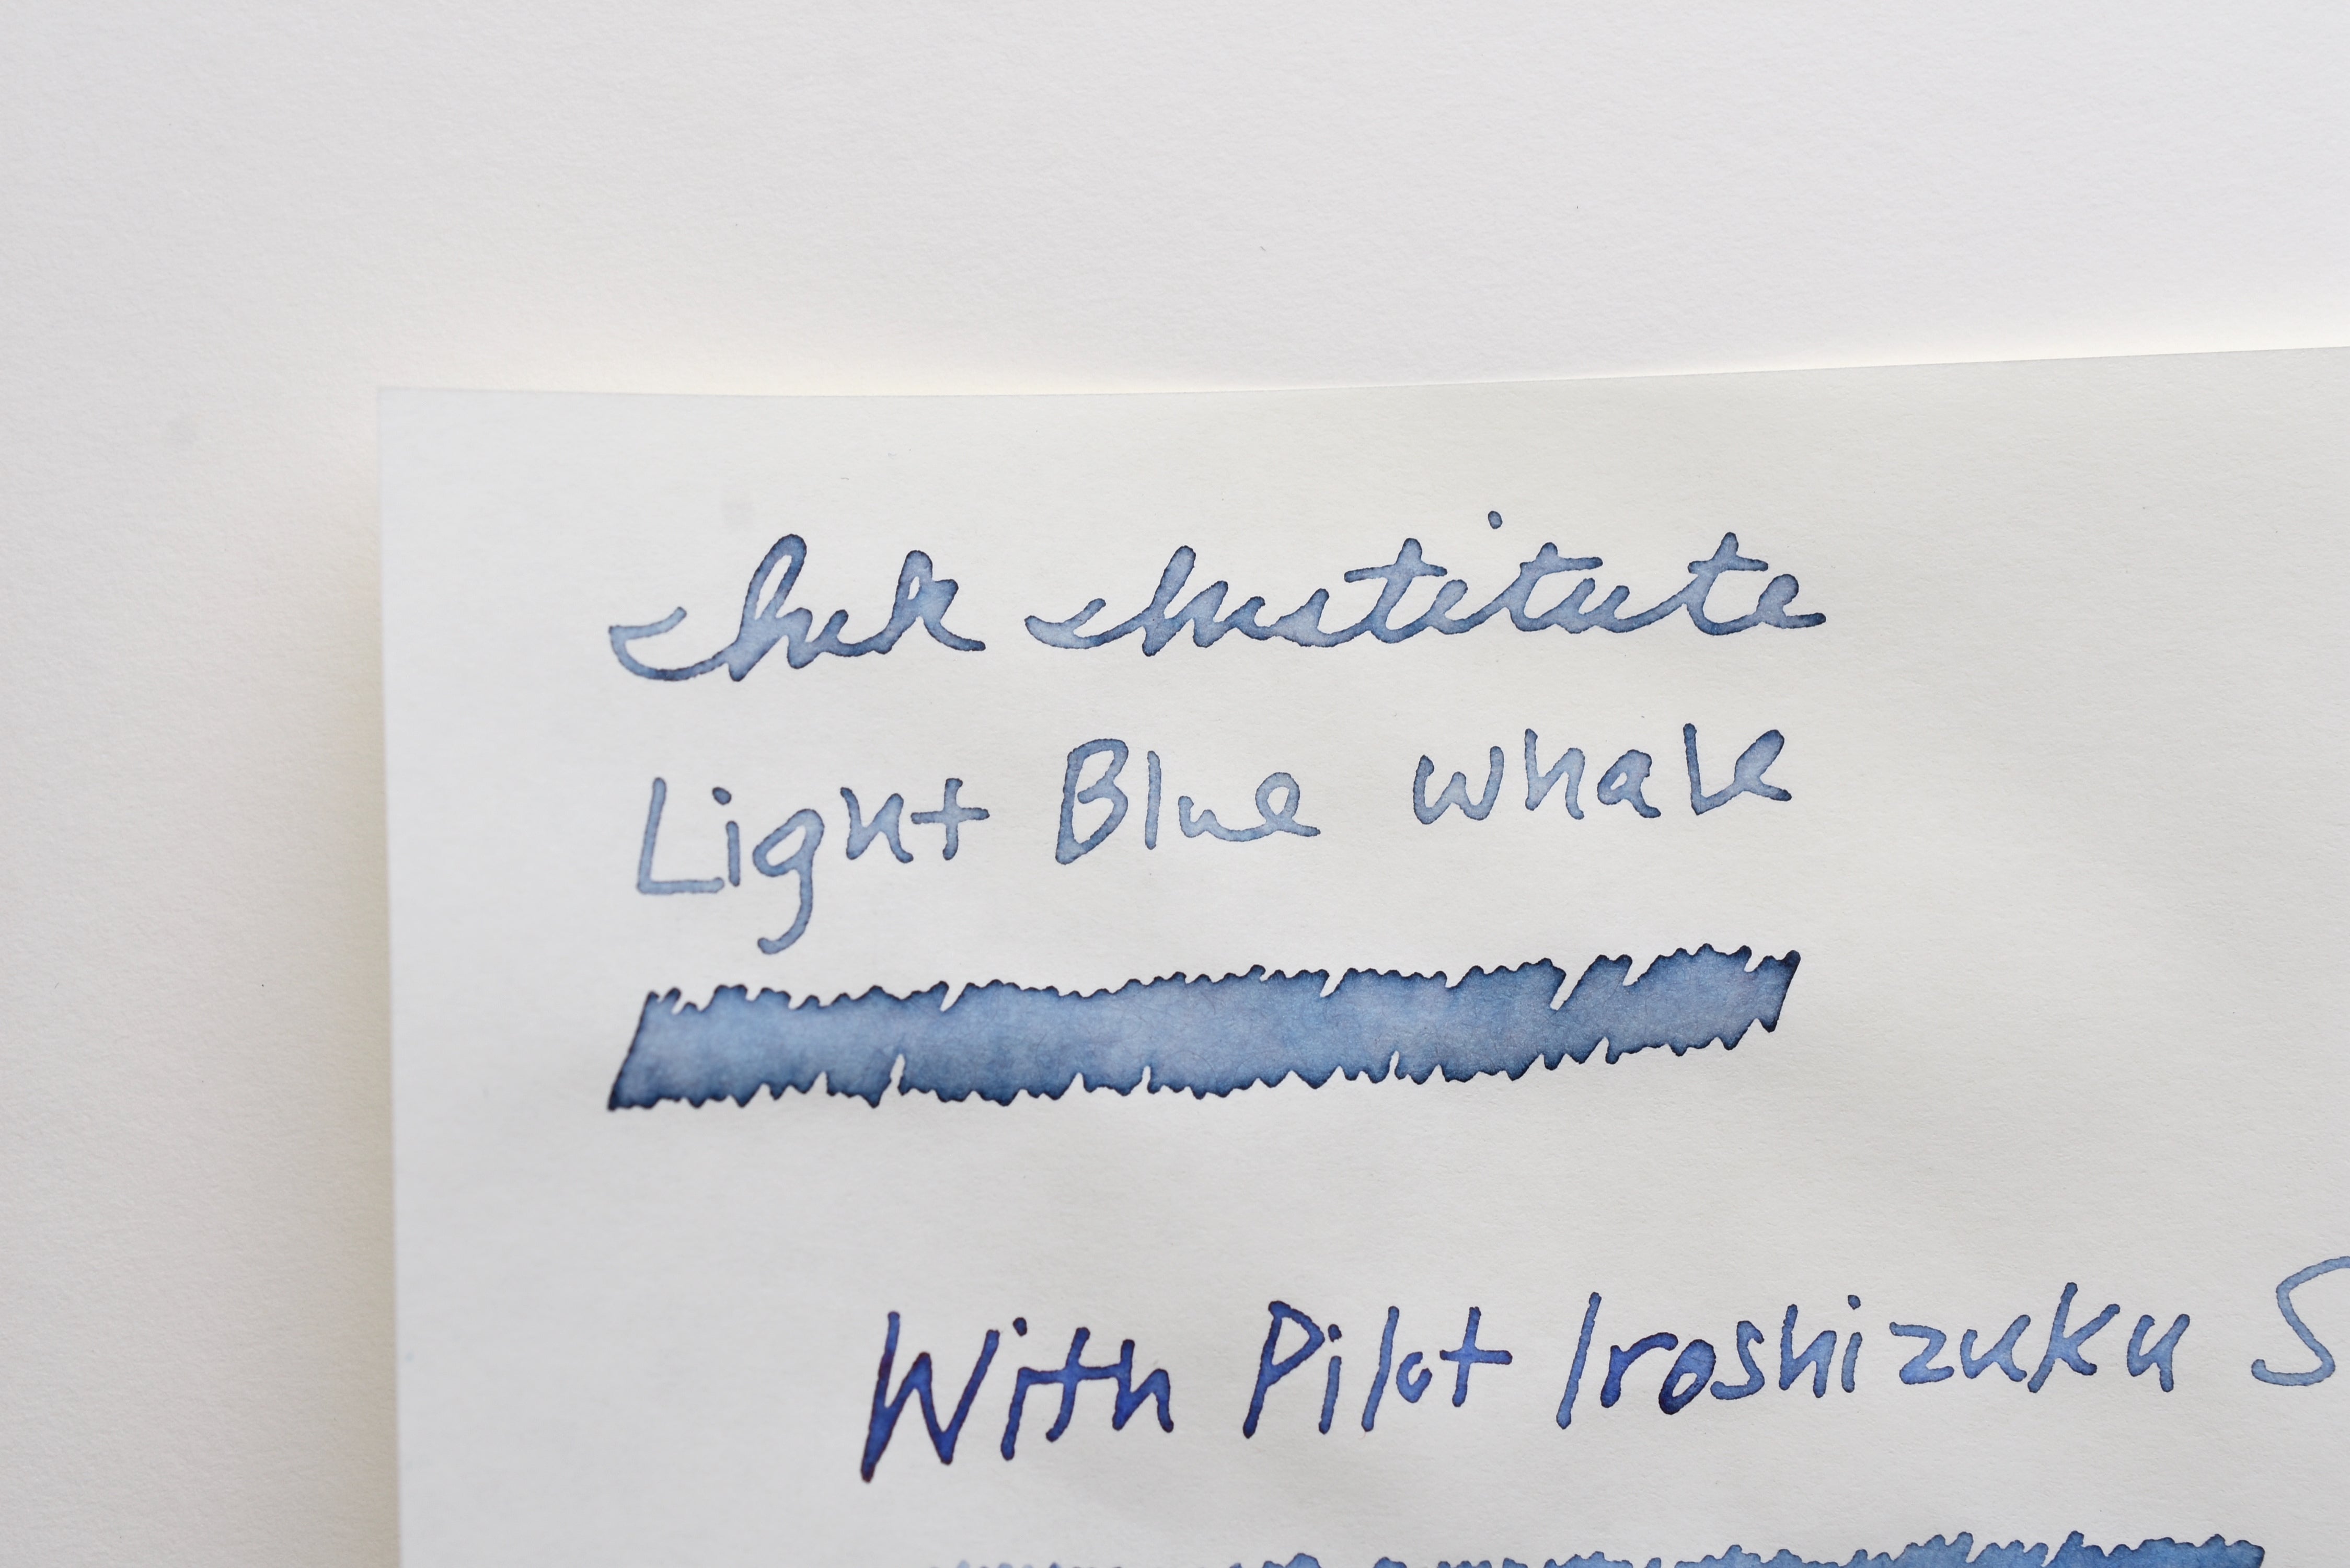 Ink Institute
Light Blue whale
With Pilot Iroshizuku S